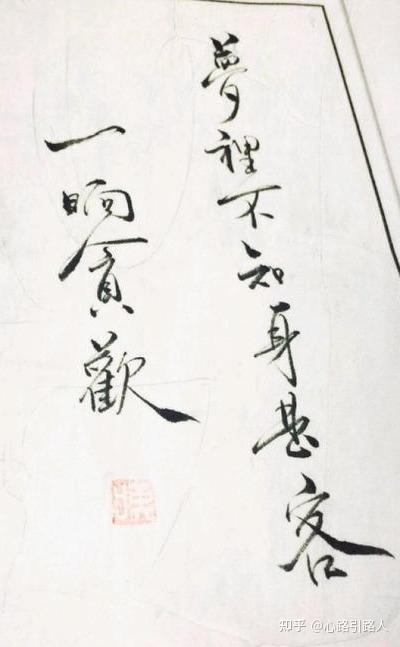 夢裡不知身甚客
一晌貪歡
知乎 @心路引路人